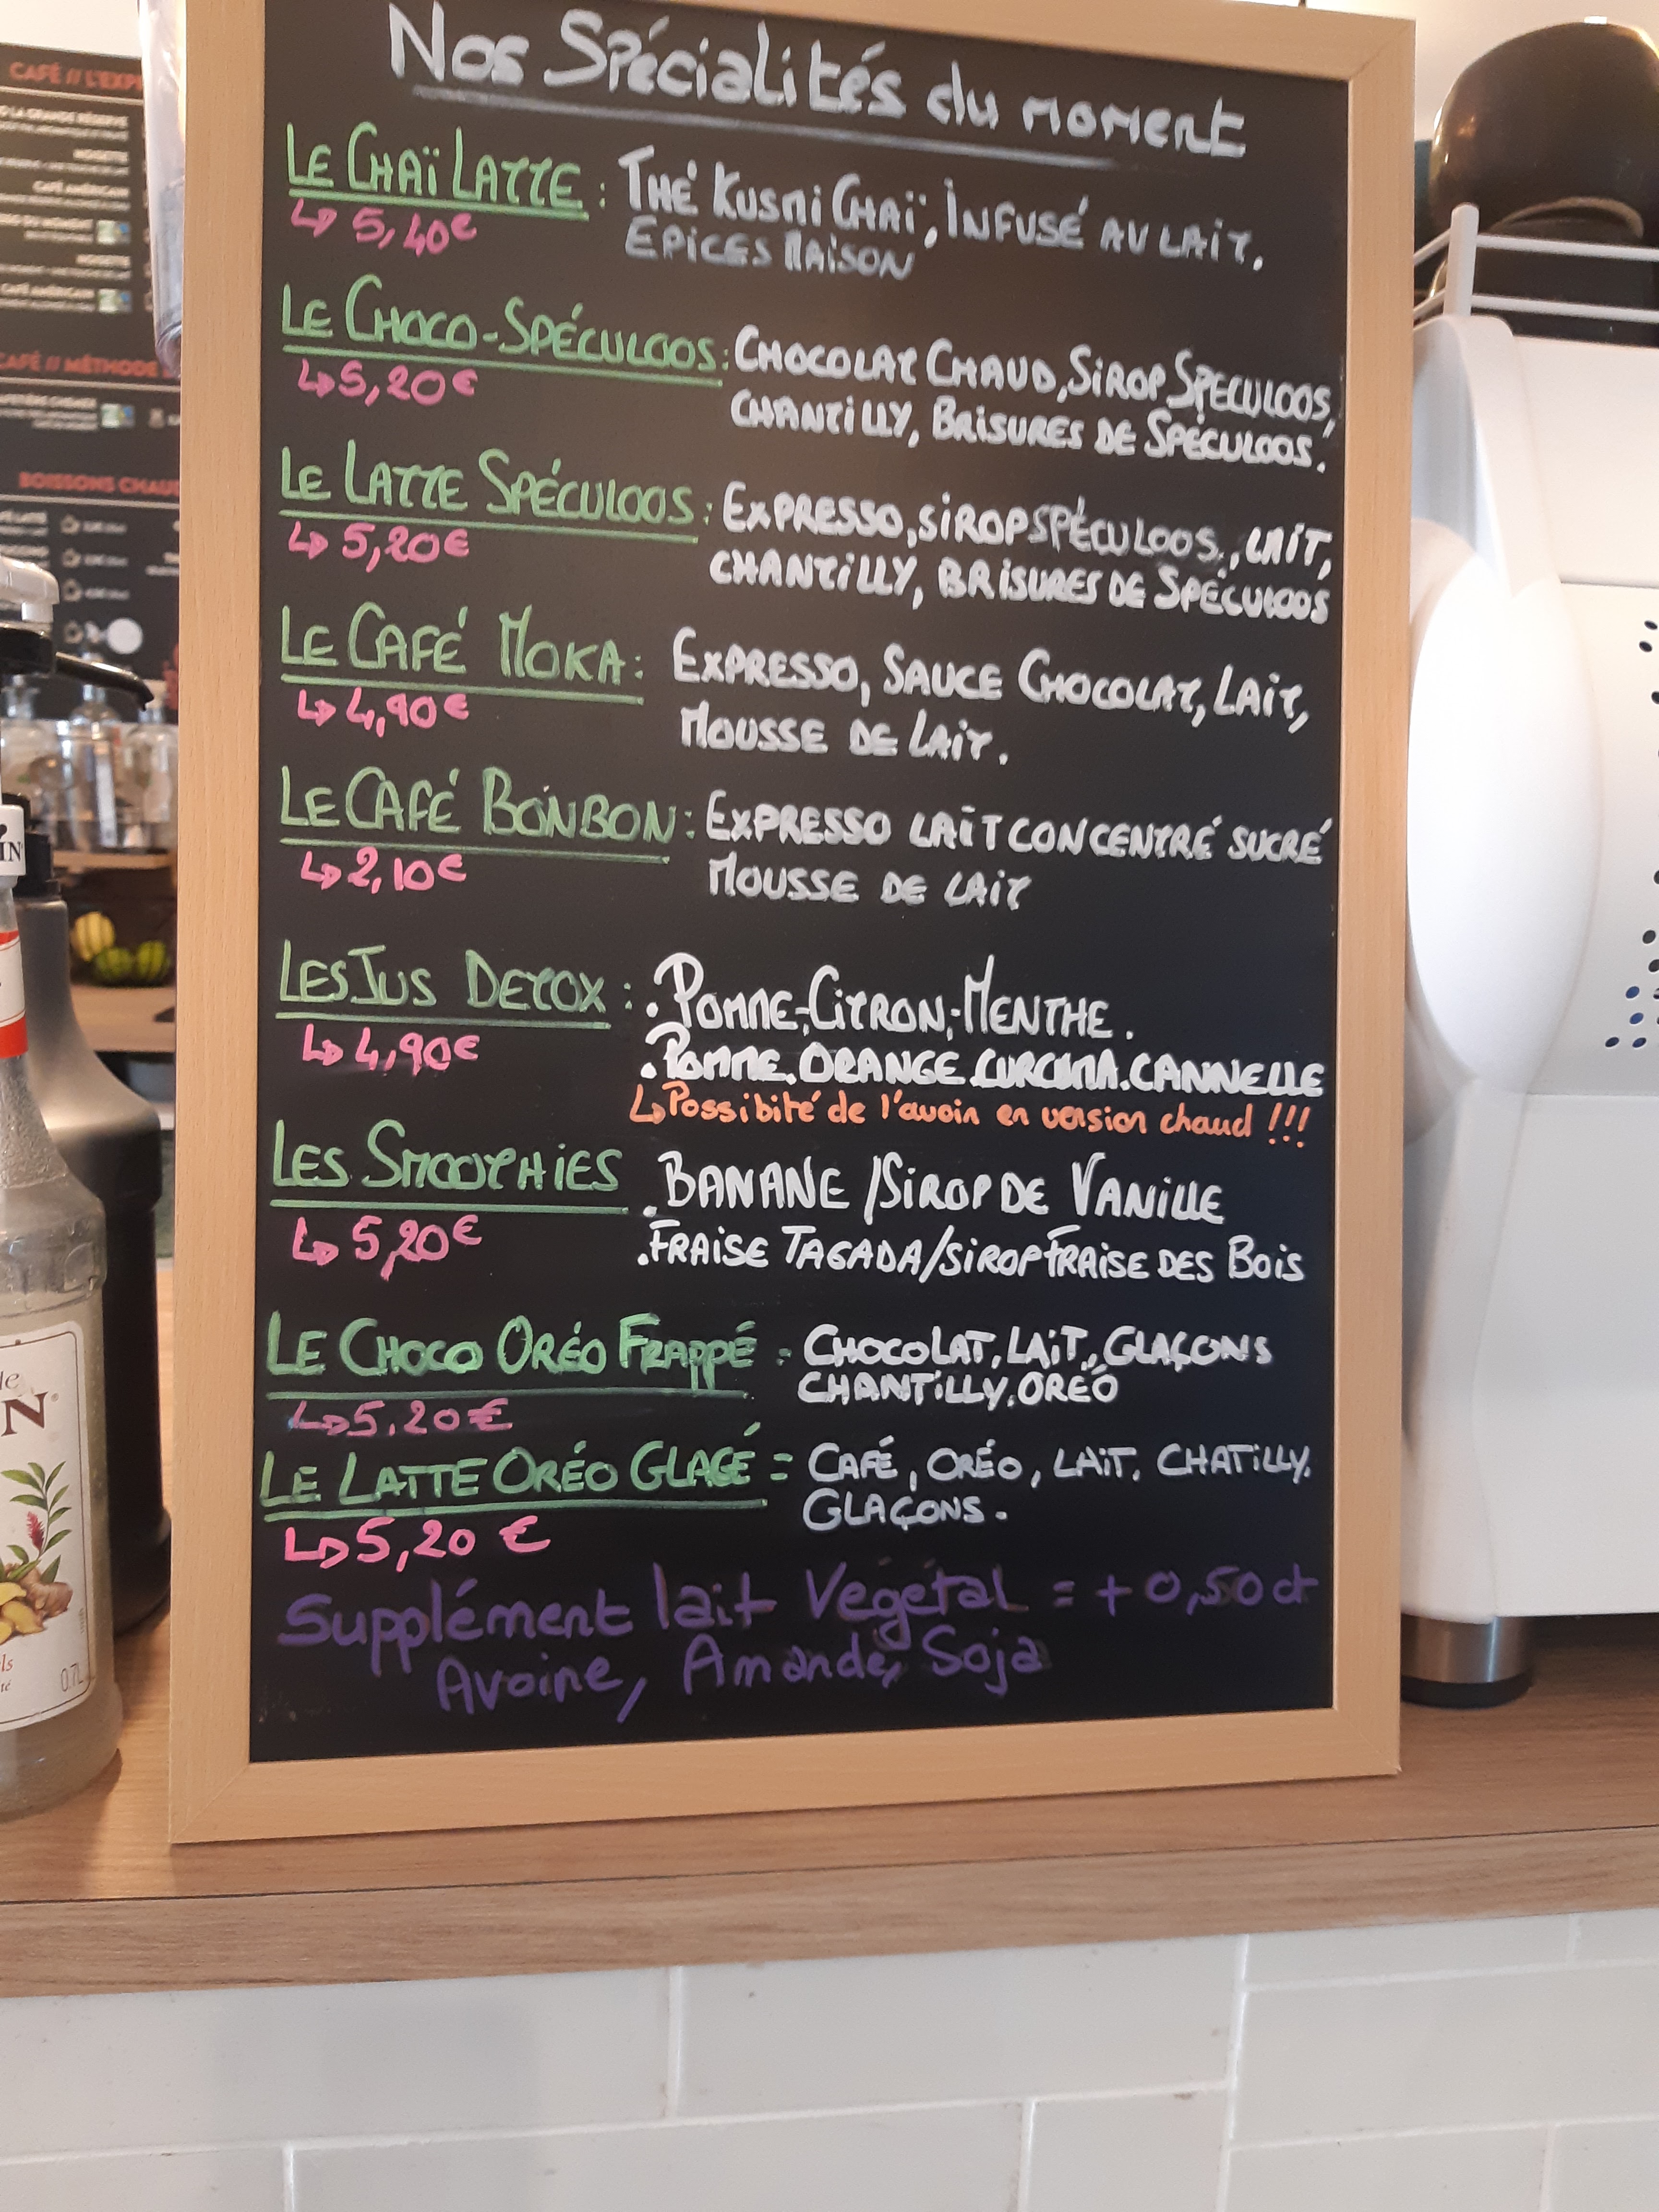 Nos Spécialités du moment
LE CHAÏ LATTE : THÉ KUSMI CHAÏ, INFUSÉ AU LAIT.
↳ 5,40€ EPICES MAISON
LE CHOCO-SPÉCULOOS : CHOCOLAT CHAUD, SIROP SPECULOOS,
↳ 5,20€ CHANTILLY, BRISURES DE SPÉCULOOS.
LE LATTE SPÉCULOOS : EXPRESSO, SIROP SPÉCULOOS, LAIT,
↳ 5,20€ CHANTILLY, BRISURES DE SPÉCULOOS
LE CAFÉ MOKA : EXPRESSO, SAUCE CHOCOLAT, LAIT,
↳ 4,90€ MOUSSE DE LAIT.
LE CAFÉ BONBON : EXPRESSO LAIT CONCENTRÉ SUCRÉ
↳ 2,10€ MOUSSE DE LAIT
LES JUS DETOX : . POMME, CITRON, MENTHE.
↳ 4,90€ . POMME. ORANGE. CURCUMA. CANNELLE
↳ Possibité de l'avoir en version chaud !!!
LES SMOOTHIES . BANANE / SIROP DE VANILLE
↳ 5,20€ . FRAISE TAGADA / SIROP FRAISE DES BOIS
LE CHOCO ORÉO FRAPPÉ - CHOCOLAT, LAIT, GLAÇONS
CHANTILLY. ORÉO
↳ 5.20€
LE LATTE ORÉO GLACÉ = CAFÉ, ORÉO, LAIT. CHATILLY.
GLAÇONS.
↳ 5,20 €
Supplément lait Végétal = + 0,50 ct
Avoine, Amande, Soja
CAFÉ // L'EXP
LA GRANDE RÉSERVE
NOISETTE
CAFÉ AMÉRICAIN
CAFÉ // MÉTHODE
BOISSONS CHAU
IN
de
N
0.7L